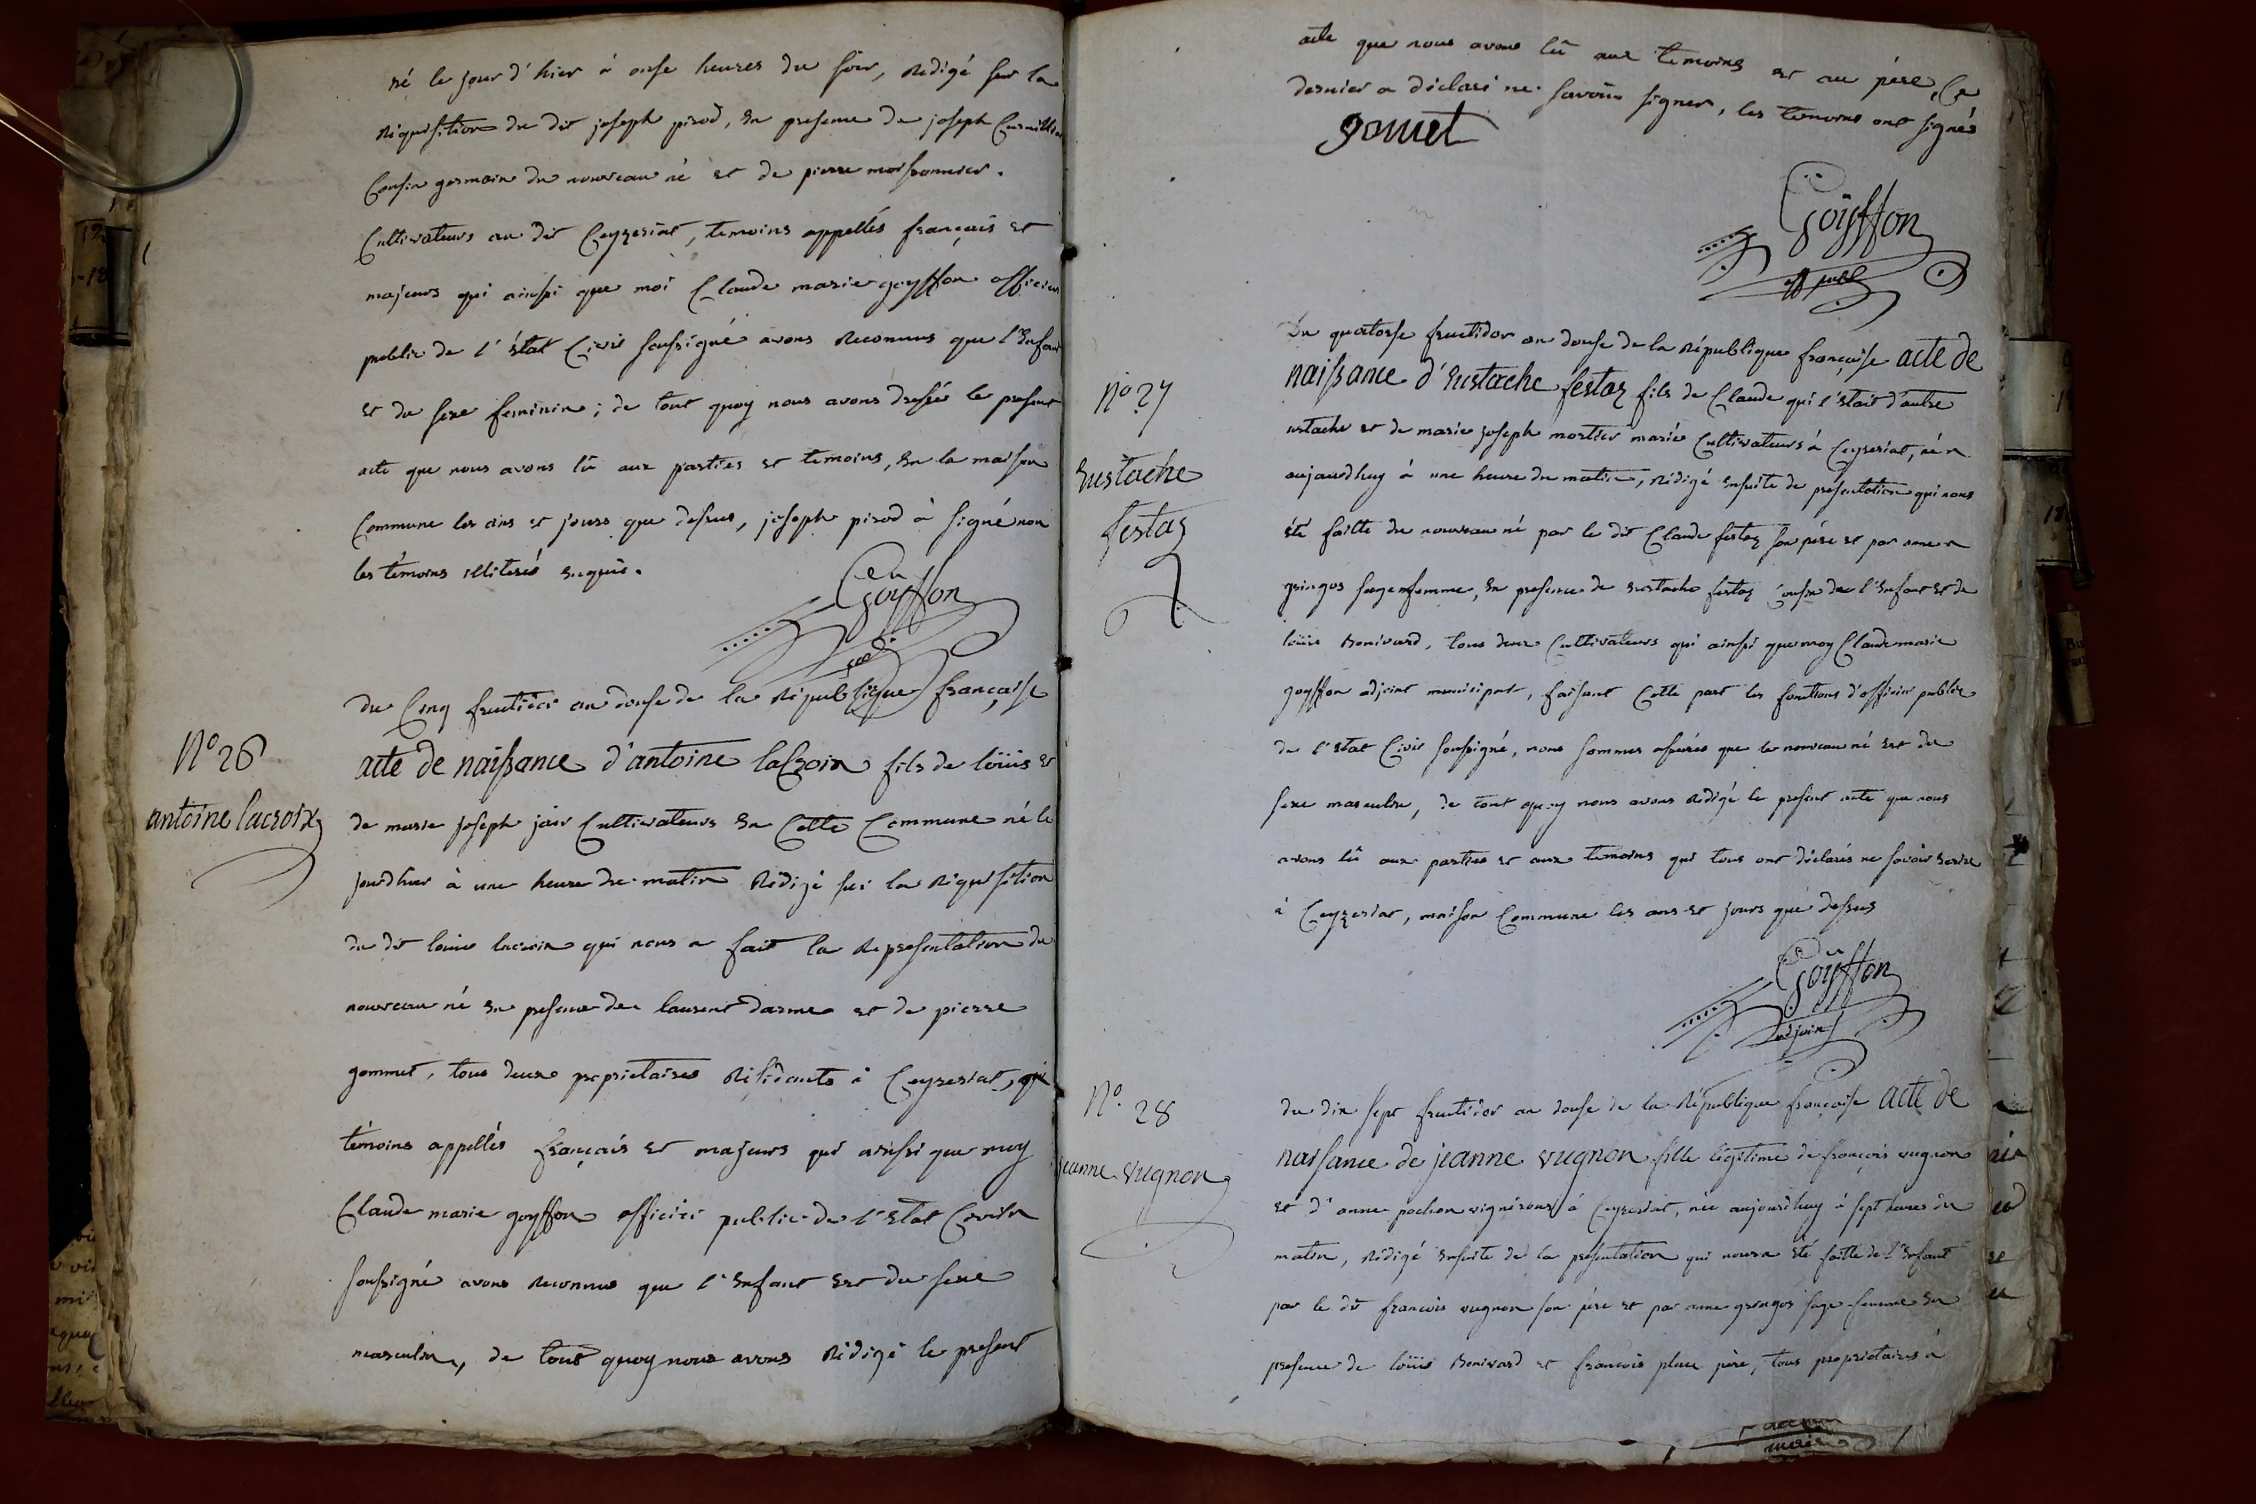 né le jour d'hier à onse heures du soir, Redigé sur la
Réquisition du dit joseph pirod, En presence de joseph
Cousin germain du nouveau né et de pierre moissonnier.
Cultivateurs au dit Ceyzeriat, temoins appellés français et
majeurs qui ainssi que moi Claude marie goyffon officier
public de l'état Civil soussigné avons Reconnus que l'Enfant
et du sexe feminin; de tout quoy nous avons dressée le present
acte que nous avons lû aux parties et temoins, En la maison
Commune les ans et jours que dessus, joseph pirod à signé non
les témoins illiterés enquis.
Goyffon
du Cinq fructidor an douse de la République française
N° 26
antoine lacroix
acte de naissance d'antoine laCroix fils de loüis et
de marie joseph jair Cultivateurs En Cette Commune né le
jourdhier à une heure du matin Rédigé sur la Réquisition
du dit louis lacroix qui nous a fait la Representation du
nouveau né En presence de laurent darme et de pierre
gommet, tous deux proprietaires Résidants à Ceyzeriat,
témoins appellés français et majeurs qui ainssi que moy
Claude marie goyffon officier public de l'Etat Civil
soussigné avons Reconnus que l'Enfant Est du sexe
masculin, de tout quoy nous avons Rédigé le present
acte que nous avons lû aux temoins et au père, Ce
dernier a déclaré ne savoir signer, les temoins ont signés
gomet
Goÿffon
off publ
Du quatorse fructidor an douse de la République française acte de
N° 27
Eustache
festaz
naissance d'Eustache festaz fils de Claude qui l'etait d'autre
ustache et de marie joseph mortier mariés Cultivateurs à Ceyzeriat, né
aujourdhuy à une heure du matin, Rédigé Ensuite de presentation qui nous
été faitte du nouveau né par le dit Claude festaz son père et par anne
gringos sage femme, En presence de Eustache festaz Cousin de l'Enfant et de
loüis Bonivard, tous deux Cultivateurs qui ainssi que moy Claude marie
goyffon adjoint municipal, faisant Cette part les fonctions d'officier public
de l'Etat Civil soussigné, nous sommes assurés que le nouveau né Est du
sexe masculin, de tout quoy nous avons Rédigé le present acte que nous
avons lû aux parties et aux temoins qui tous ont déclarés ne savoir Ecrire
à Ceyzeriat, maison Commune les ans et jours que dessus
Goyffon
adjoint
N° 28
jeanne vugnon
du dix sept fructidor an douse de la République française acte de
naissance de jeanne vugnon fille légitime de françois vugnon
et d'anne pochon vignerons à Ceyzeriat, née aujourdhuy à sept heures du
matin, Rédigé Ensuite de la presentation qui nous a été faitte de l'Enfant
par le dit françois vugnon son père et par anne gringos sage femme En
presence de loüis Bonivard et françois place père, tous proprietaires à